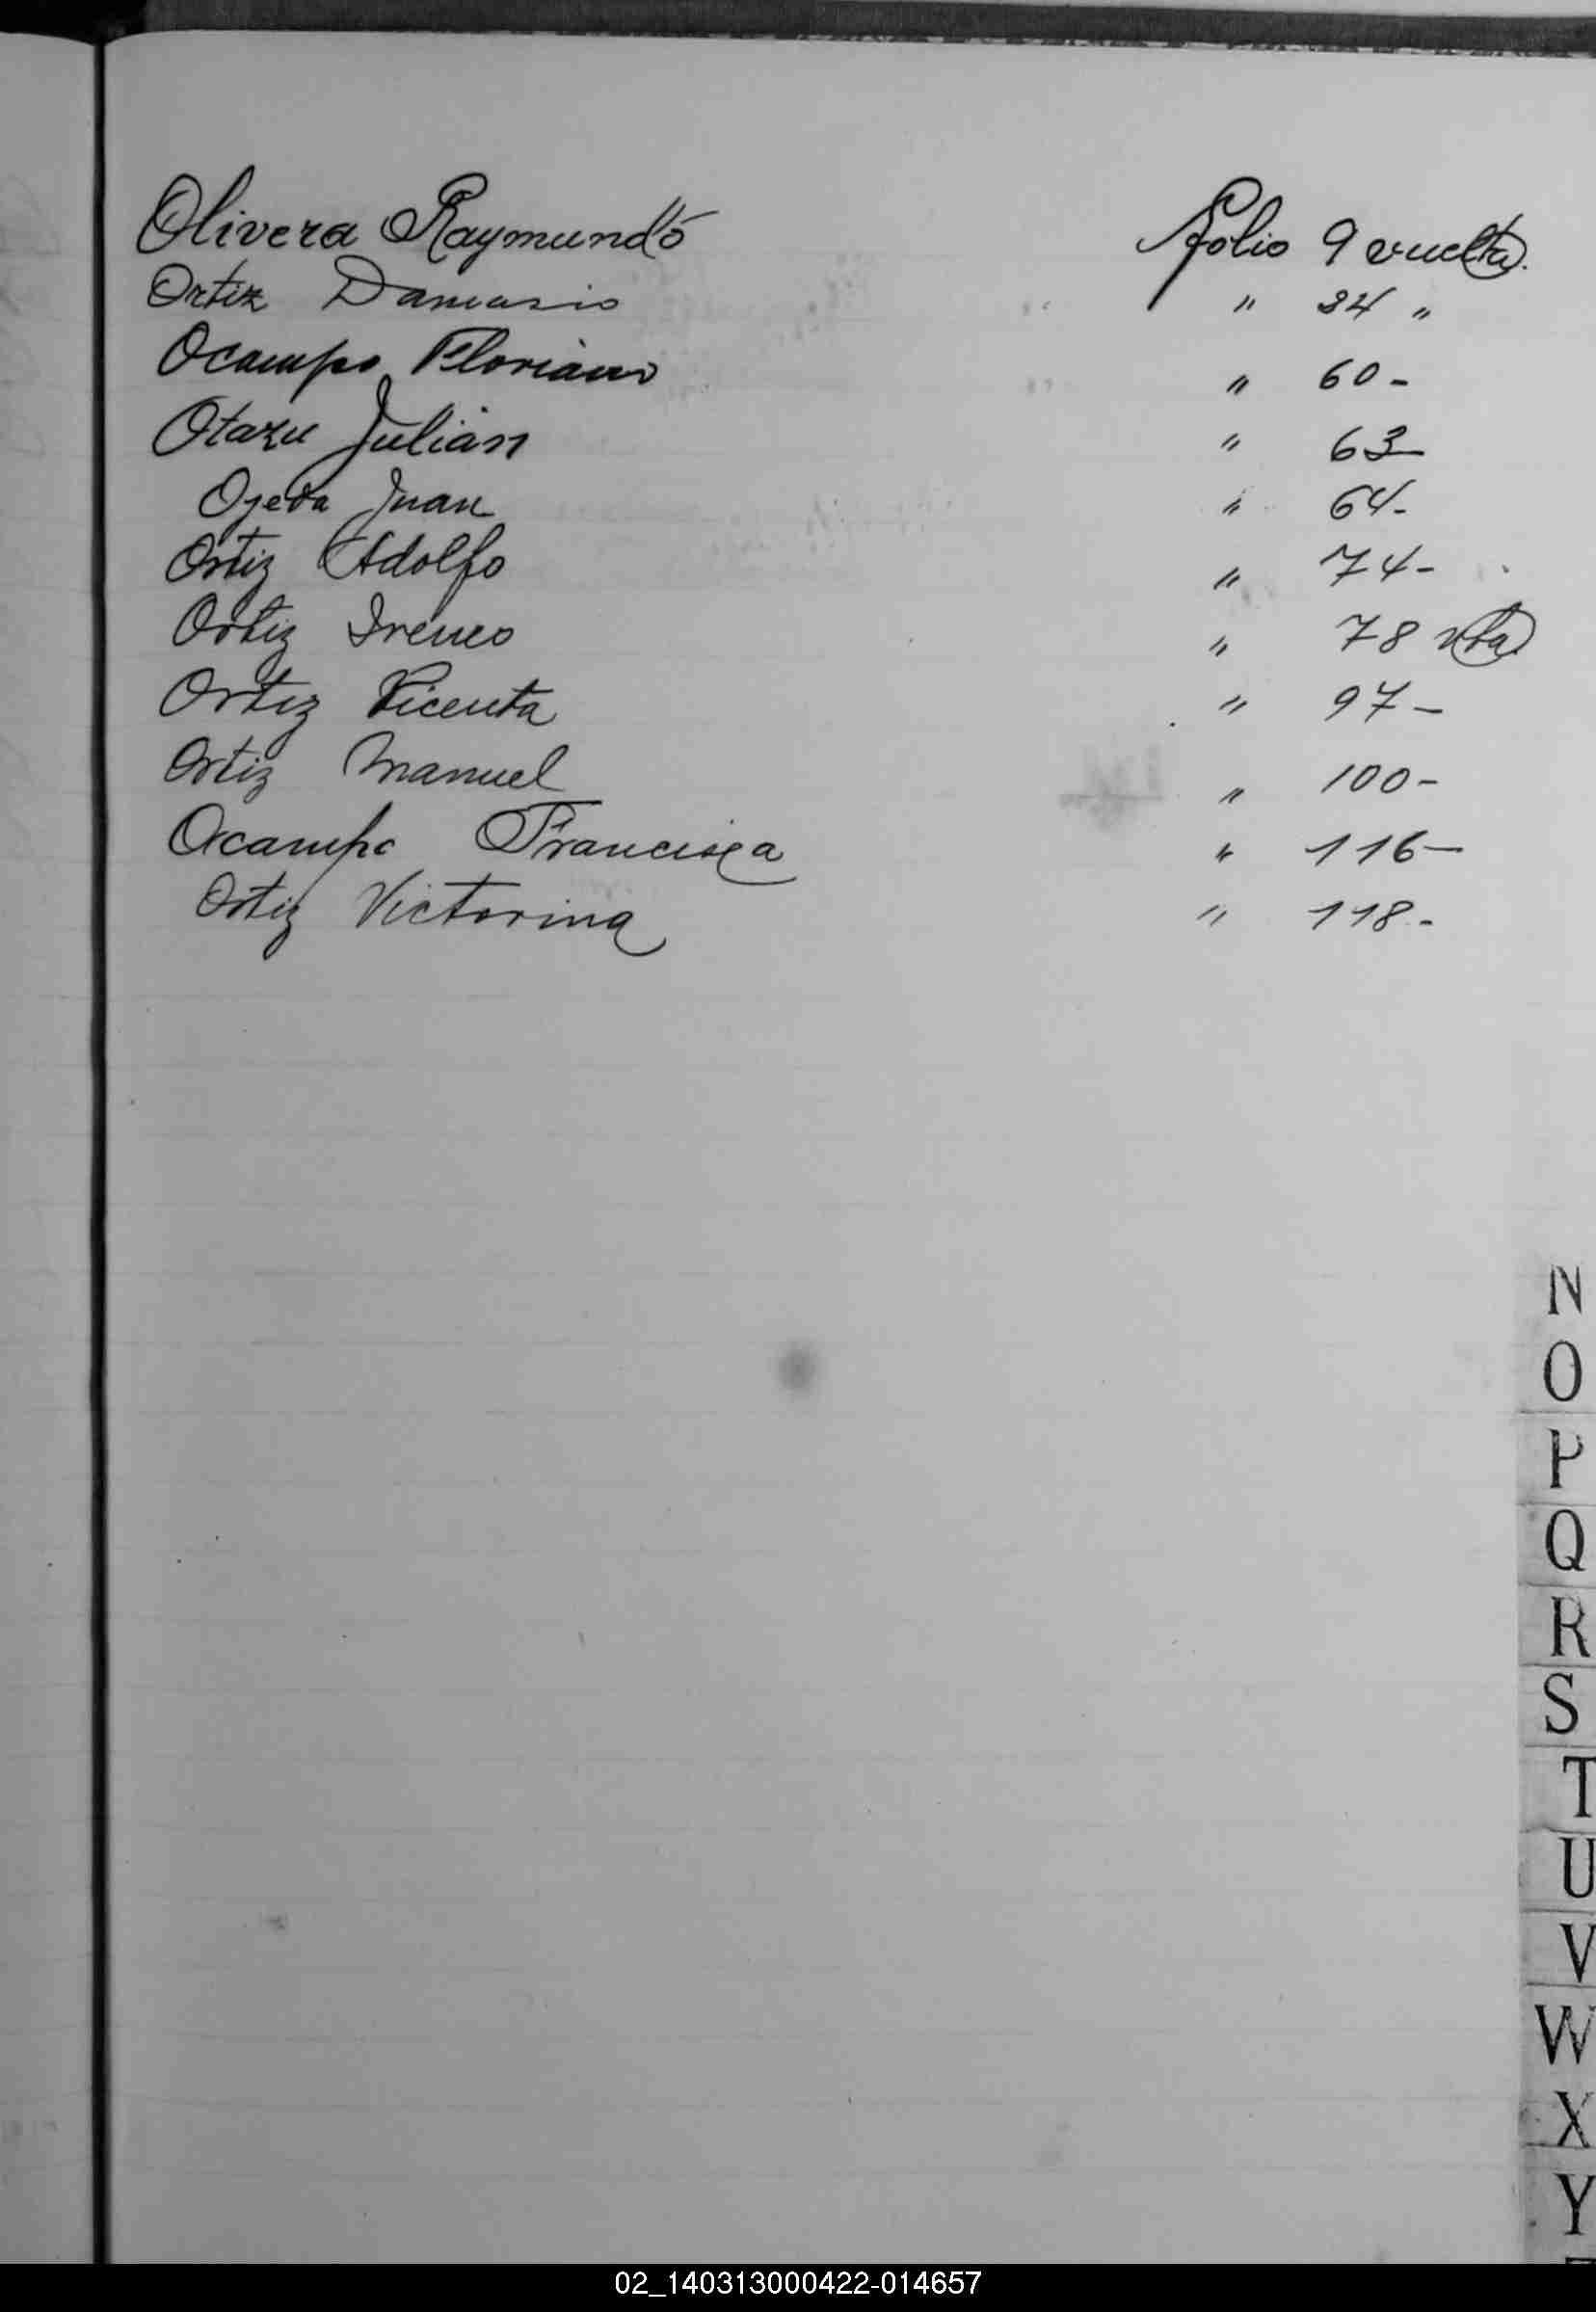 Olivera Raymundo Folio 9 vuelta.
Ortiz Damasio " 34 "
Ocampo Floriano " 60-
Otazu Julián " 63-
Ojeda Juan " 64-
Ortiz Adolfo " 74-
Ortiz Ireneo " 78 vta
Ortiz Vicenta " 97-
Ortiz Manuel " 100-
Ocampo Francisca " 116-
Ortiz Victorina " 118-
N
O
P
Q
R
S
T
U
V
W
X
Y
02_140313000422-014657